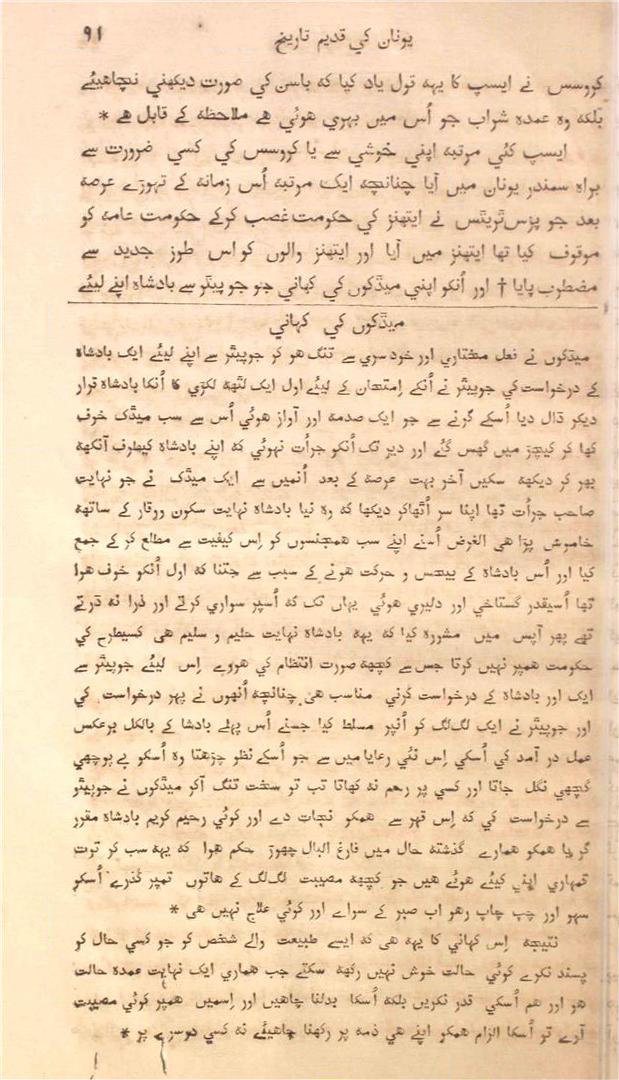 یونان کي قدیم تاریخ ۹۱
کروسس نے ایسپ کا یہہ قول یاد کیا کہ باسن کي صورت دیکھني نچاهیئے
بلکہ وہ عمدہ شراب جو اُس میں بھري هوئي هے ملاحظہ کے قابل هے *
ایسپ کئي مرتبہ اپني خوشي سے یا کروسس کي کسي ضرورت سے
براہ سمندر یونان میں آیا چنانچہ ایک مرتبہ اُس زمانہ کے تھوڑے عرصہ
بعد جو پزس تریتس نے ایتھنز کي حکومت غصب کرکے حکومت عامہ کو
موقوف کیا تھا ایتھنز میں آیا اور ایتھنز والوں کو اس طرز جدید سے
مضطرب پایا † اور اُنکو اپني میڈکوں کي کهاني جو جوپیٹر سے بادشاہ اپنے لیئے
میڈکوں کي کهاني
میڈکوں نے فعل مختاري اور خود سري سے تنگ هو کر جوپیٹر سے اپنے لیئے ایک بادشاہ
کے درخواست کي جوپیٹر نے اُنکے اِمتحان کے لیئے اول ایک لٹھہ لکڑي کا اُنکا بادشاہ قرار
دیکر ڈال دیا اُسکے گرنے سے جو ایک صدمہ اور آواز هوئي اُس سے سب میڈک خوف
کھا کر کیچڑ میں گھس گئے اور دیر تک اُنکو جراُت نہوئي کہ اپنے بادشاہ کیطرف آنکھہ
بھر کر دیکھہ سکیں آخر بہت عرصہ کے بعد اُنمیں سے ایک میڈک نے جو نہایت
صاحب جراُت تھا اپنا سر اُٹھاکر دیکھا کہ وہ نیا بادشاہ نہایت سکون ووقار کے ساتھہ
خاموش پڑا هی الغرض اُسنے اپنے سب همجنسوں کو اِس کیفیت سے مطلع کر کے جمع
کیا اور اُس بادشاہ کے بیحس و حرکت هونے کے سبب سے جتنا کہ اول اُنکو خوف هوا
تھا اُسیقدر گستاخي اور دلیري هوئي یہاں تک کہ اُسپر سواري کرتے اور ذرا نہ ڈرتے
تھے پھر آپس میں مشورہ کیا کہ یہہ بادشاہ نہایت حلیم و سلیم هی کسیطرح کي
حکومت همپر نہیں کرتا جس سے کچھہ صورت انتظام کي هووے اِس لیئے جوپیٹر سے
ایک اور بادشاہ کے درخواست کرني مناسب هی چنانچہ اُنھوں نے پھر درخواست کي
اور جوپیٹر نے ایک لگ لگ کو اُنپر مسلط کیا جسنے اُس پہلے بادشا کے بالکل برعکس
عمل در آمد کي اُسکي اِس نئي رعایا میں سے جو اُسکے نظر چڑھتا وہ اُسکو بے پوچھي
گچھي نگل جاتا اور کسي پر رحم نہ کھاتا تب تو سخت تنگ آکر میڈکوں نے جوپیٹر
سے درخواست کي کہ اِس قہر سے همکو نجات دے اور کوئي رحیم کریم بادشاہ مقرر
کر یا همکو همارے گذشتہ حال میں فارغ البال چھوڑ حکم هوا کہ یہہ سب کر توت
تمہاري اپني کیئے هوئے هیں جو کچھہ مصیبت لگ لگ کے هاتوں تمپر گذرے اُسکو
سہو اور چپ چاپ رهو اب صبر کے سواے اور کوئي علاج نہیں هی *
نتیجہ اِس کہاني کا یہہ هی کہ ایسے طبیعت والے شخص کو جو کسي حال کو
پسند نکرے کوئي حالت خوش نہیں رکھہ سکتے جب هماري ایک نہایت عمدہ حالت
هو اور هم اُسکي قدر نکریں بلکہ اُسکا بدلنا چاهیں اور اِسمیں همپر کوئي مصیبت
آوے تو اُسکا الزام همکو اپنے هي ذمہ پر رکھنا چاهیئے نہ کسي دوسرے پر *